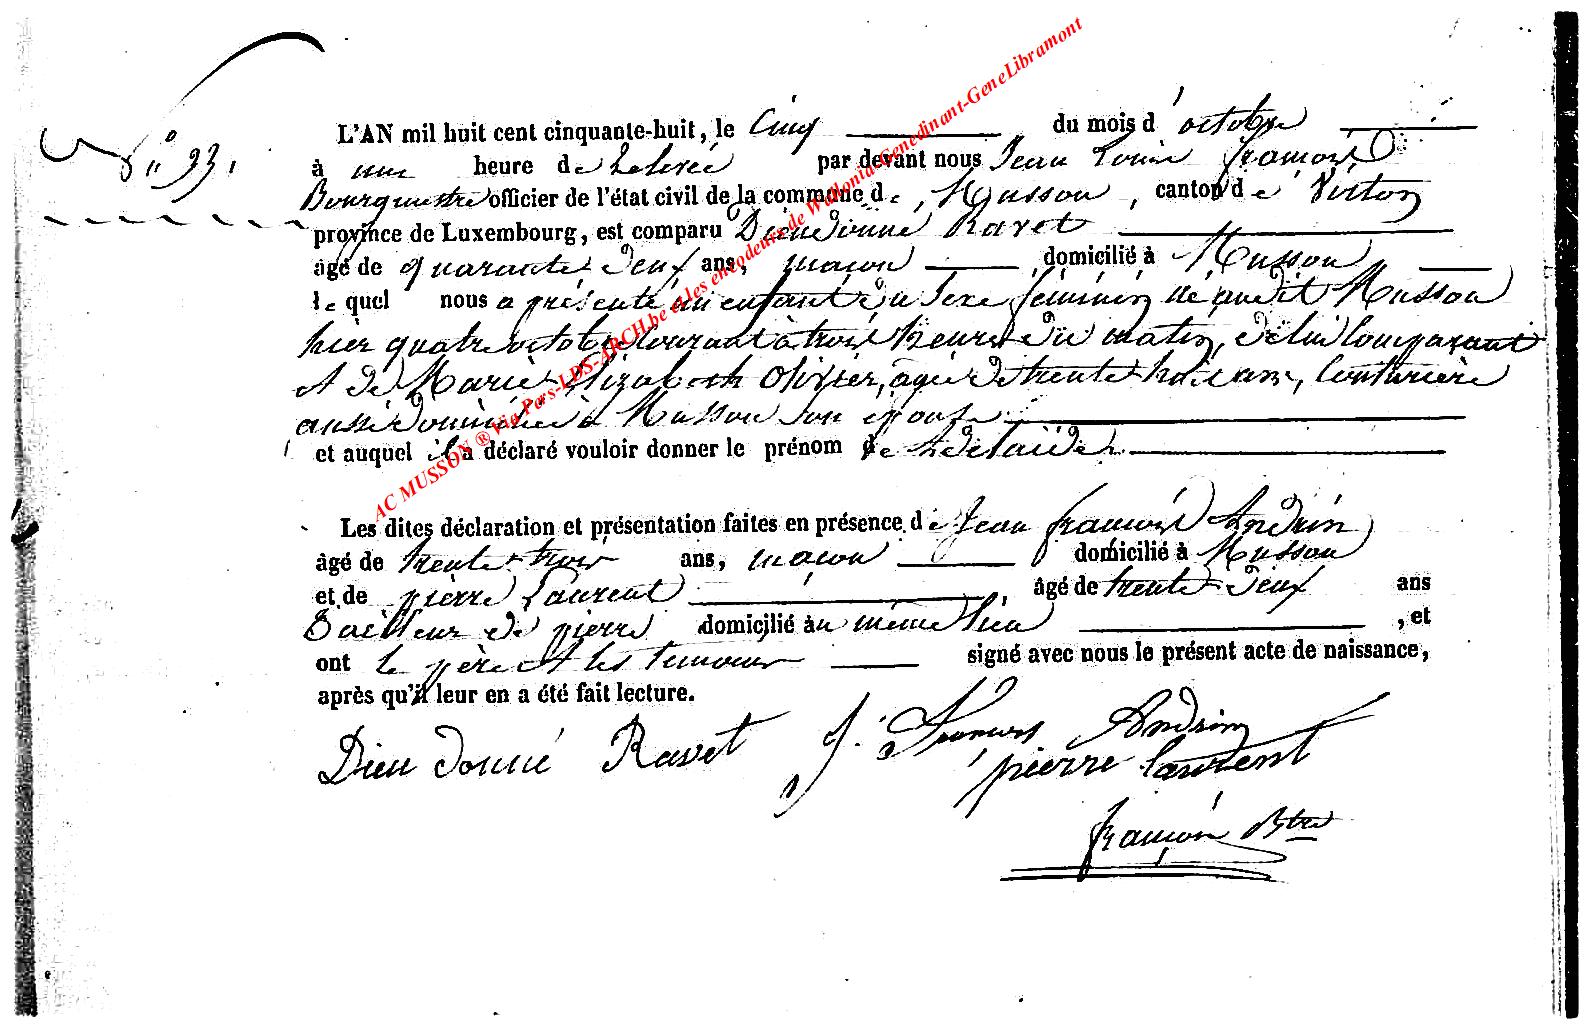 L'AN mil huit cent cinquante-huit, le Cinq du mois d'octobre
N° 33.
à une heure de relevée par devant nous Jean Louis François
Bourgmestre officier de l'état civil de la commune de Musson, canton de Virton
province de Luxembourg, est comparu Dieudonné Ravet
âgé de quarante deux ans, maçon domicilié à Musson
lequel nous a présenté un enfant du sexe féminin né audit Musson
hier quatre octobre courant à trois heures du matin, de lui Comparant
et de Marie Elizabeth Olivier, agée de trente huit ans, Couturière
aussi domiciliée à Musson son épouse
et auquel il a déclaré vouloir donner le prénom de Adelaïde
Les dites déclaration et présentation faites en présence de Jean françois Andrin
âgé de trente trois ans, maçon domicilié à Musson
et de pierre Laurent âgé de trente deux ans
Tailleur de pierre domicilié au même lieu, et
ont le père et les temoins signé avec nous le présent acte de naissance,
après qu'il leur en a été fait lecture.
Dieudonné Ravet J. François Andrin
pierre laurent
françois Btre
AC MUSSON ® Via Pers-LDS-ARCH.be et les encodeurs de Wallonia-Genedinant-GeneLibramont